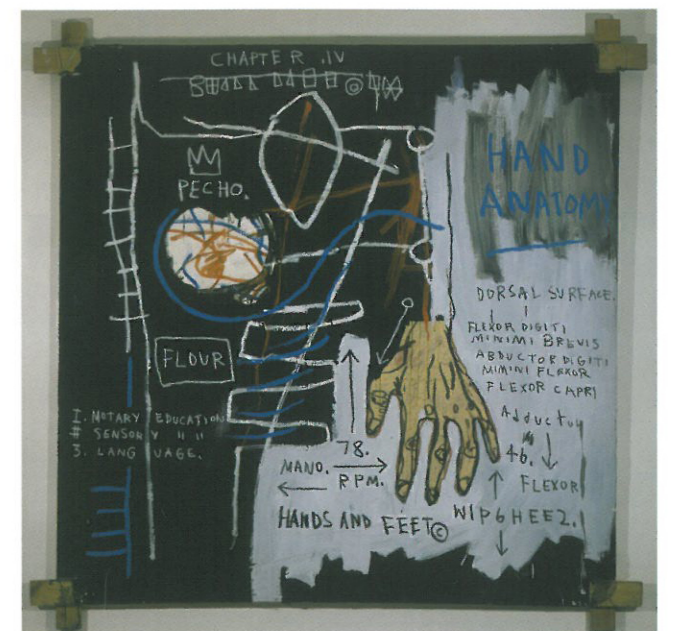 CHAPTER .IV
PECHO.
HAND
ANATOMY
DORSAL SURFACE.
FLEXOR DIGITI
MINIMI BREVIS
ABDUCTOR DIGITI
MIMINI FLEXOR
FLEXOR CAPRI
Adductor
" "
46.
FLEXOR
FLOUR
I. NOTARY EDUCATION
# SENSORY " "
3. LANGUAGE.
78.
MANO.
RPM.
HANDS AND FEET©